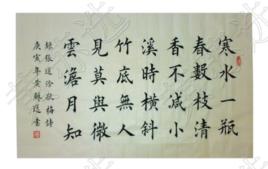 寒水一瓶
春數枝清
香不減小
溪時橫斜
竹底無人
見莫與微
雲澹月知
錄張道洽瓶梅詩
庚寅年黃
書